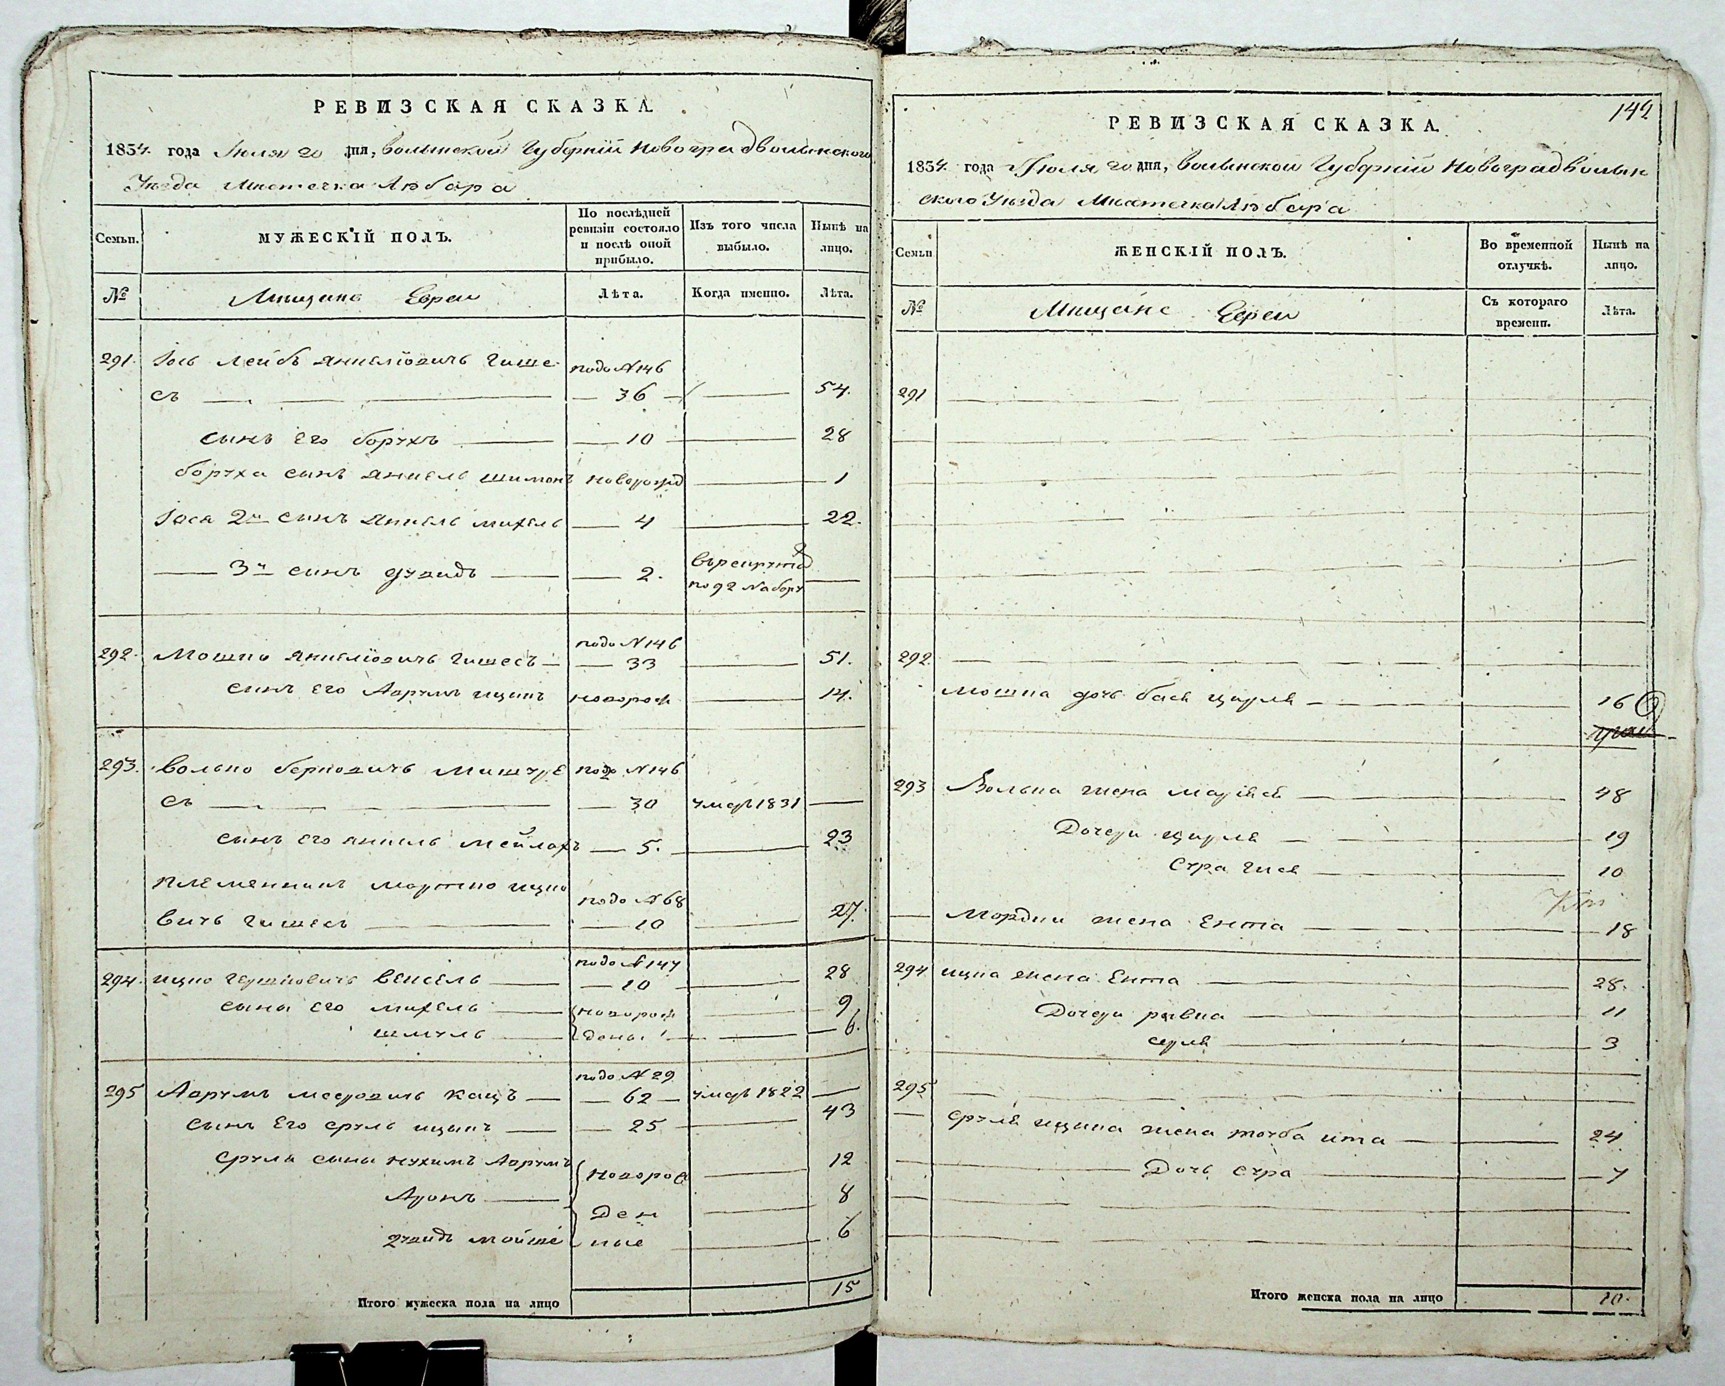 РЕВИЗСКАЯ СКАЗКА.
1834. года Іюля 20 дня, волынской Губерніи Новоградволынского
Уезда Мистечка Любара
Семьи.
МУЖЕСКІЙ ПОЛЪ.
По послѣдней ревизіи состояло и послѣ оной прибыло.
Изъ того числа выбыло.
Нынѣ на лицо.
№
Мищане Евреи
Лѣта.
Когда именно.
Лѣта.
291. Іось Лейбъ Анкелёвичъ Гише- подо №146
съ — 36 — 54.
сынъ его борухъ — 10 — 28
боруха сынъ Анкель шимонъ новорожд — 1
Іося 2й сынъ Анкель михель — 4 — 22.
— 3й сынъ дувидъ — 2. въ рекрут
по 92 Набору
292. Мошко Анкелёвичъ Гишесъ — подо №146
33 — 51.
сынъ его Аврумъ ицикъ новорож — 14.
293. Волько берковичъ Мишуре подо №146
съ — 30 умеръ 1831 —
сынъ его Анкель Мейлахъ — 5. — 23
племенникъ мортко ицко подо №68
вичъ Гишесъ — 10 — 27.
294. ицко Гершковичъ Венсель — подо №147
10 — 28
сыны его михель — новорож — 9
шмуль — дены — 6.
295 Аврумъ мееровичъ Кацъ — подо №29
62 — умеръ 1822 —
сынъ его сруль ицыкъ — 25 — 43
сруля сыны нухимъ Аврумъ Новоро — 12
Аронъ — Ден — 8
дувидъ мойше ные — 6
Итого мужеска пола на лицо 15
142
РЕВИЗСКАЯ СКАЗКА.
1834. года Іюля 20 дня, волынской Губерніи Новоградволын
ского Уезда Мистечка Любара
Семьи
ЖЕНСКІЙ ПОЛЪ.
Во временной отлучкѣ.
Нынѣ на лицо.
№
Мищане Евреи
Съ котораго времени.
Лѣта.
291
292
мошка дочь бася цирля — 16
293 Волька жена — 48
Дочери цирля — 19
сура гися — 10
— Мордки жена Ента — 18
294 ицка жена Ента — 28.
Дочери ривка — 11
сурля — 3
295
— сруля ицика жена тоуба ита — 24
— Дочь сура — 7
Итого женска пола на лицо 10.